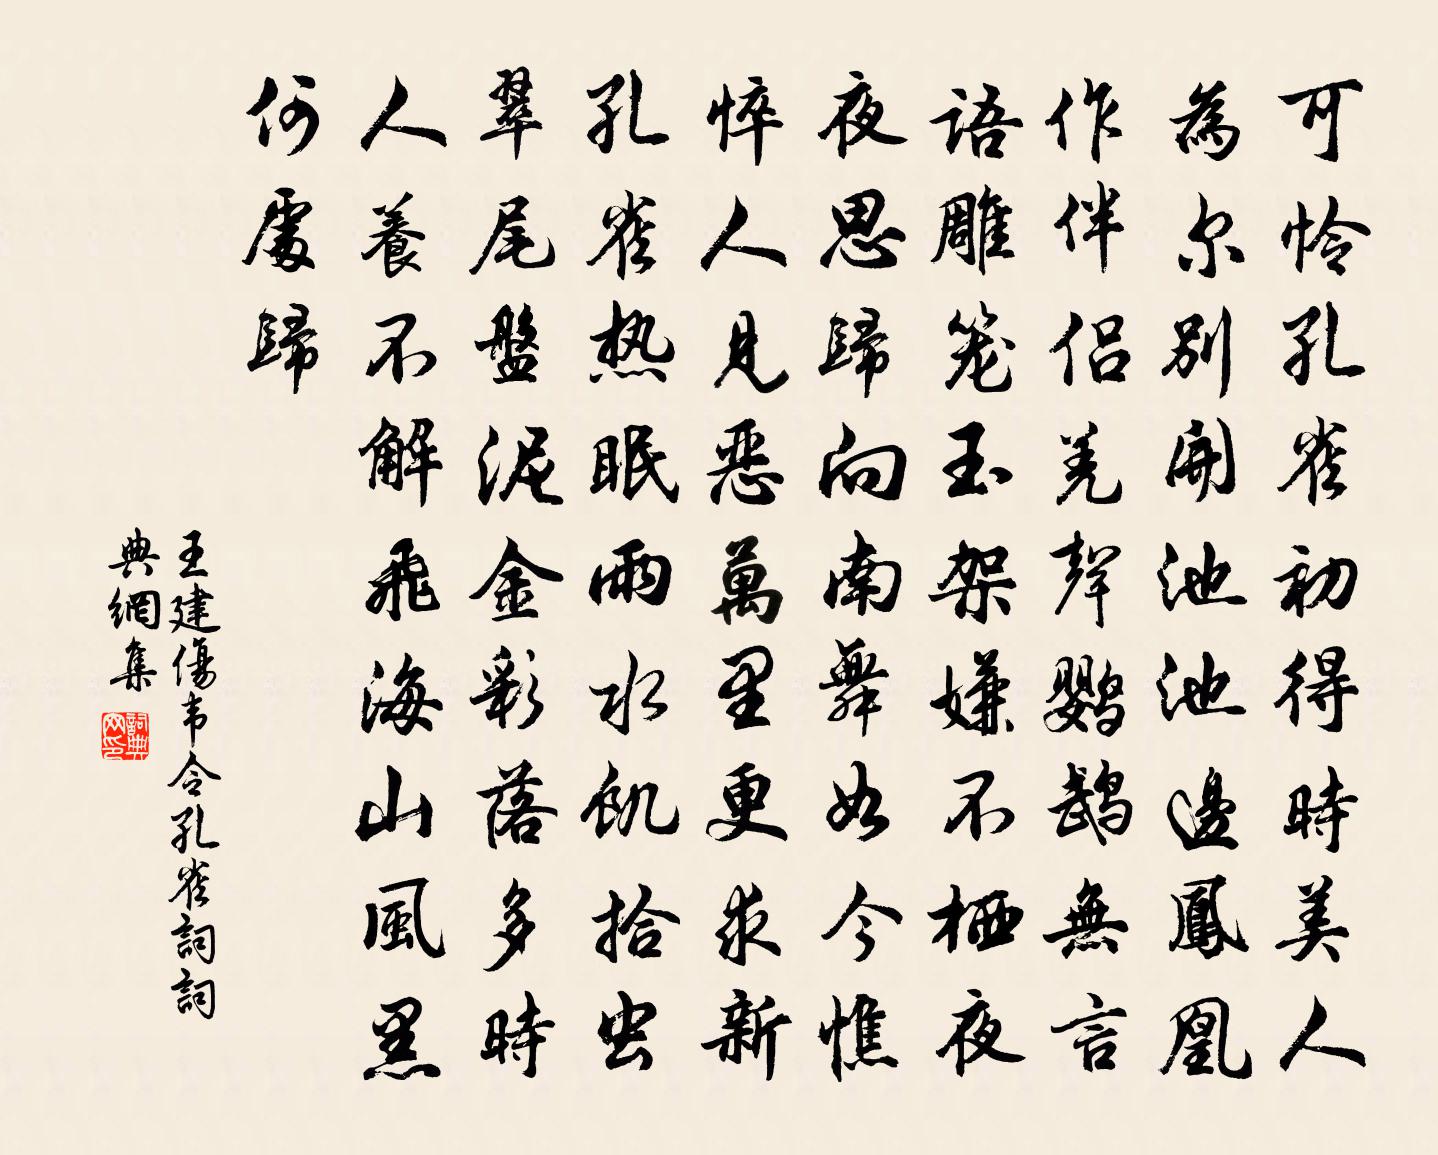 可怜孔雀初得時美人
為尔別開池池邊鳳凰
作伴侣羌聲鹦鹉無言
語雕笼玉架嫌不栖夜
夜思歸向南舞如今憔
悴人見恶萬里更求新
孔雀热眠雨水飢拾虫
翠尾盤泥金彩落多時
人養不解飛海山風黑
何處歸
王建傷韦令孔雀詞詞
典網集
詞典
网印